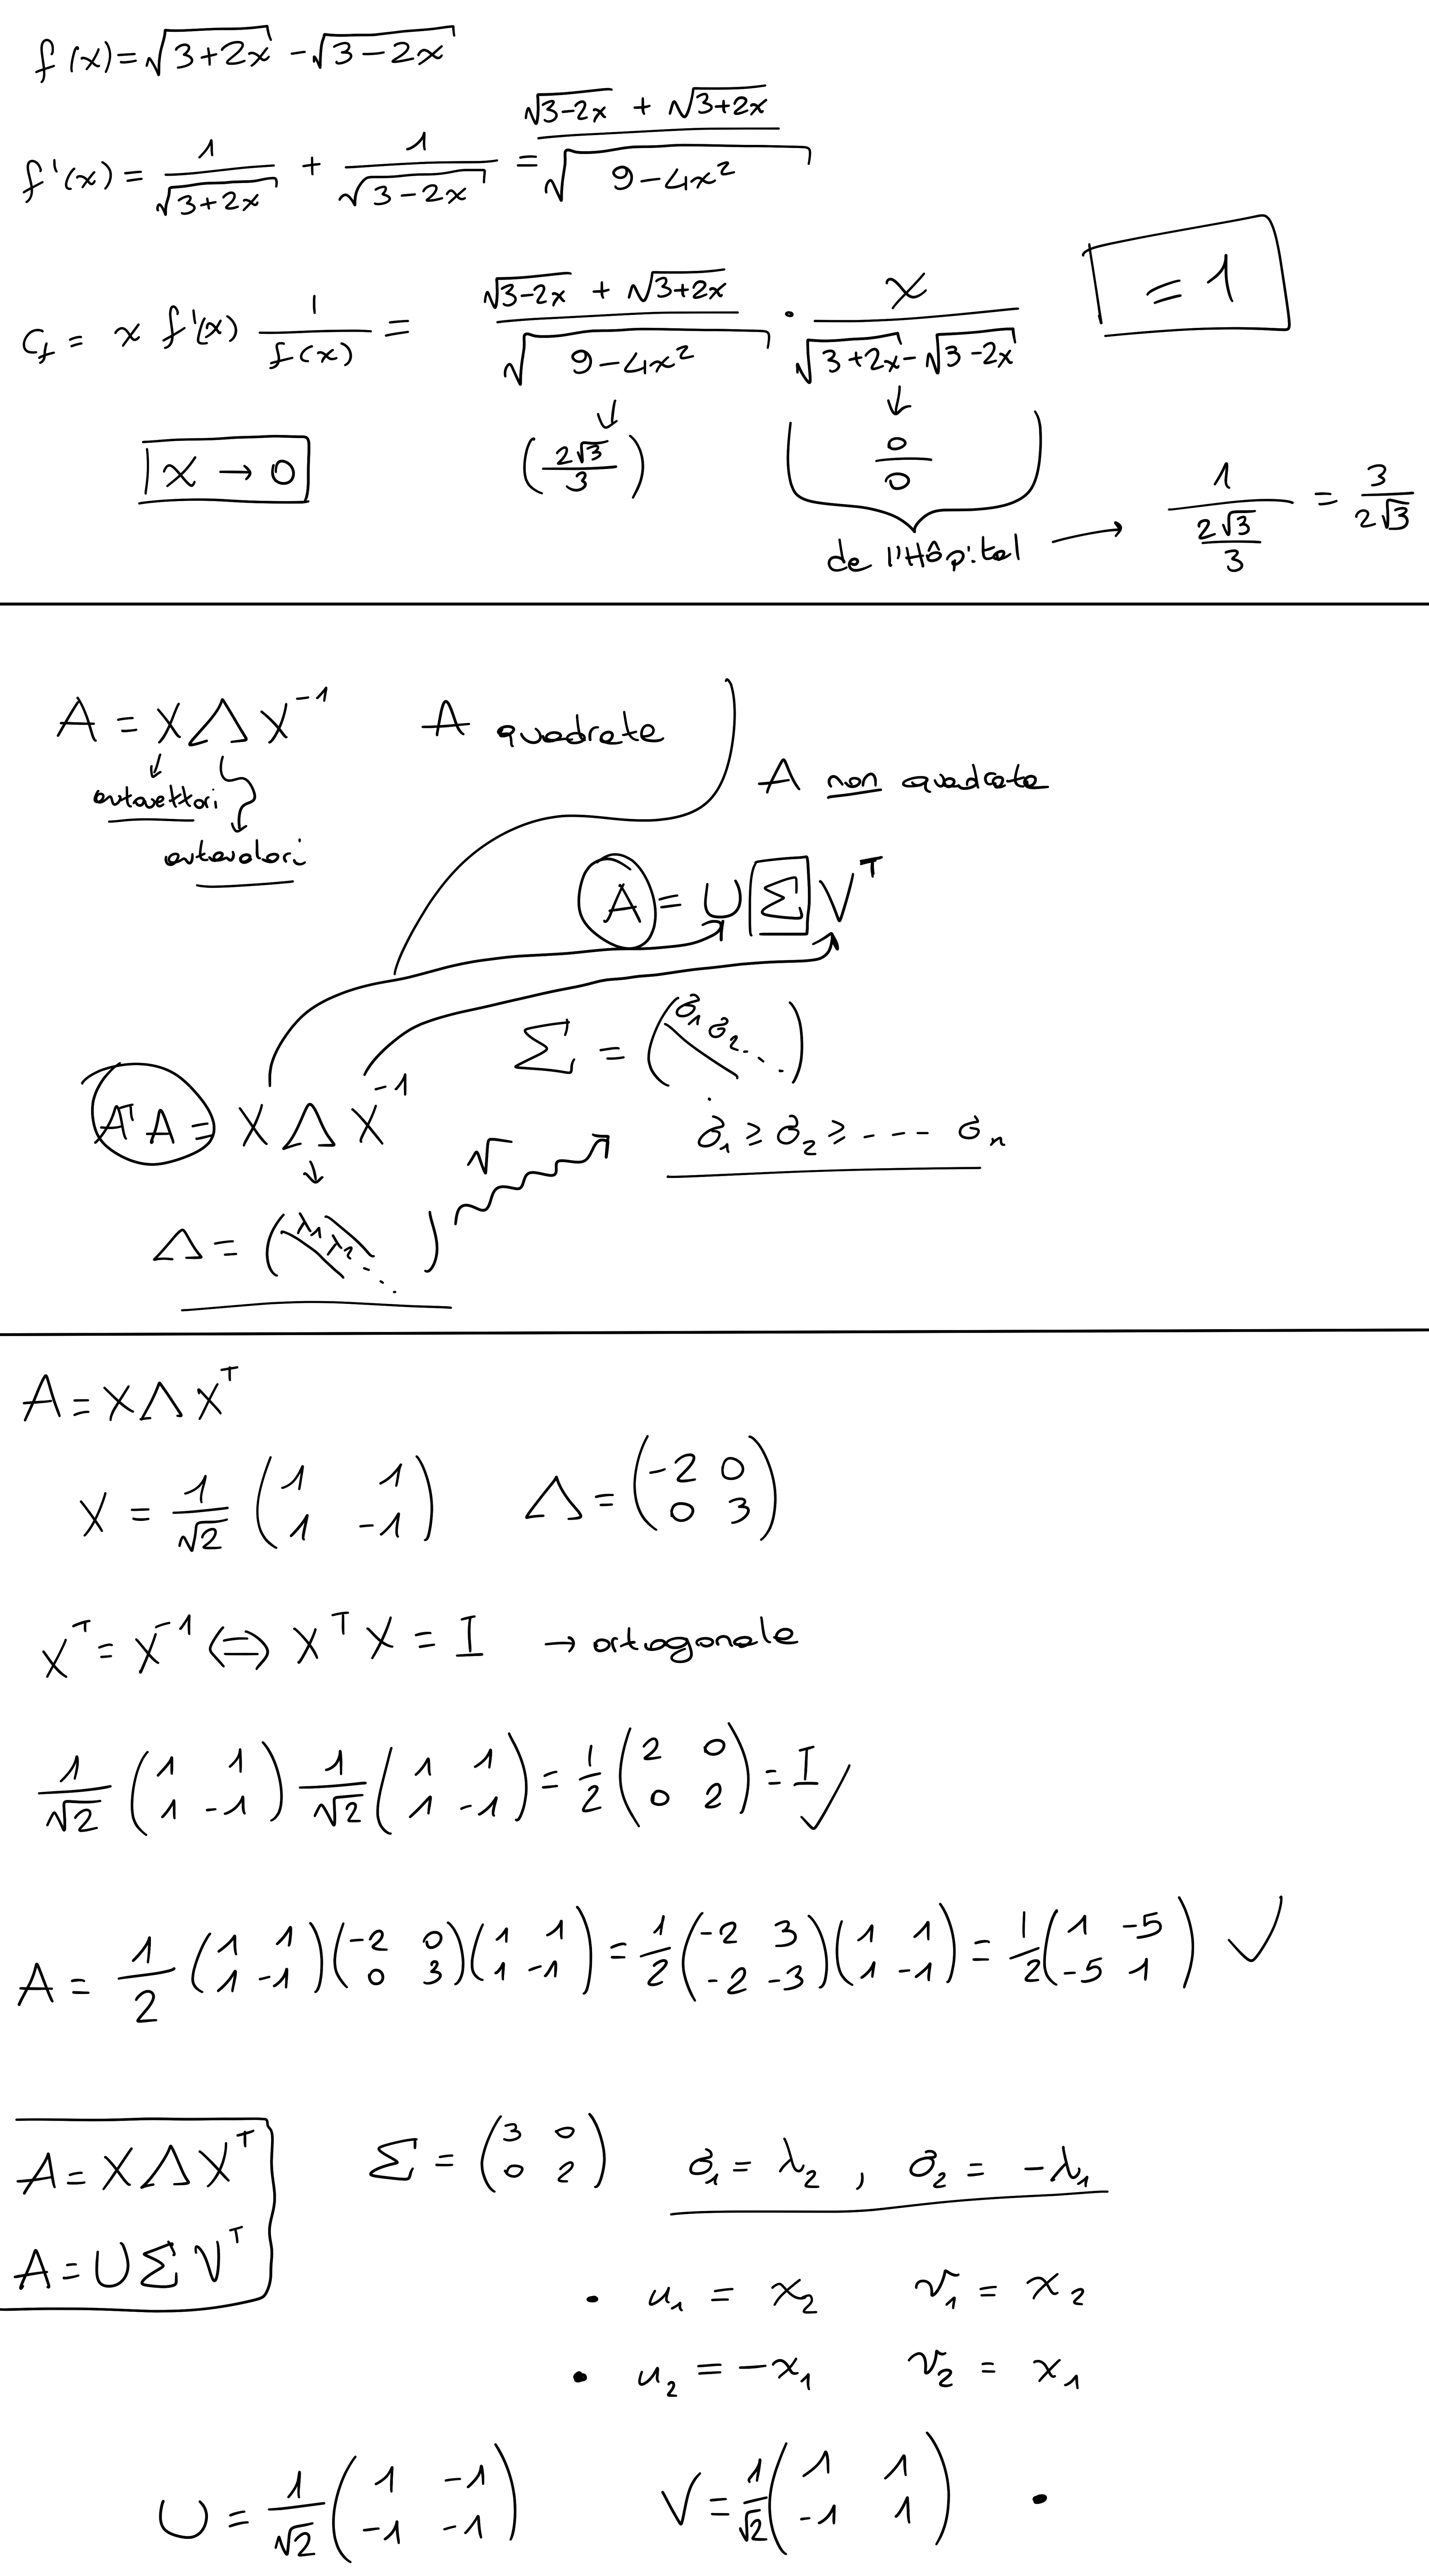 f(x) = √(3+2x) − √(3−2x)
f'(x) = 1/√(3+2x) + 1/√(3−2x) = (√(3−2x) + √(3+2x))/√(9−4x²)
C_f = x f'(x) 1/f(x) = (√(3−2x) + √(3+2x))/√(9−4x²) · x/(√(3+2x) − √(3−2x)) = 1
x → 0 ↓ (2√3/3) ↓ 0/0
de l'Hôpital → 1/(2√3/3) = 3/(2√3)
A = XΛX⁻¹ A quadrata
autovettori
autovalori
A non quadrata
A = UΣVᵀ
Σ = (σ₁ σ₂ ⋱)
AᵀA = XΛX⁻¹
√ σ₁ ≥ σ₂ ≥ ---- σₙ
Λ = (λ₁ λ₂ ⋱)
A = XΛXᵀ
X = 1/√2 (1 1; 1 −1) Λ = (−2 0; 0 3)
Xᵀ = X⁻¹ ⟺ XᵀX = I → ortogonale
1/√2 (1 1; 1 −1) 1/√2 (1 1; 1 −1) = 1/2 (2 0; 0 2) = I ✓
A = 1/2 (1 1; 1 −1)(−2 0; 0 3)(1 1; 1 −1) = 1/2 (−2 3; −2 −3)(1 1; 1 −1) = 1/2 (1 −5; −5 1) ✓
A = XΛXᵀ Σ = (3 0; 0 2) σ₁ = λ₂ , σ₂ = −λ₁
A = UΣVᵀ
• u₁ = x₂ v₁ = x₂
• u₂ = −x₁ v₂ = x₁
U = 1/√2 (1 −1; −1 −1) V = 1/√2 (1 1; −1 1) •